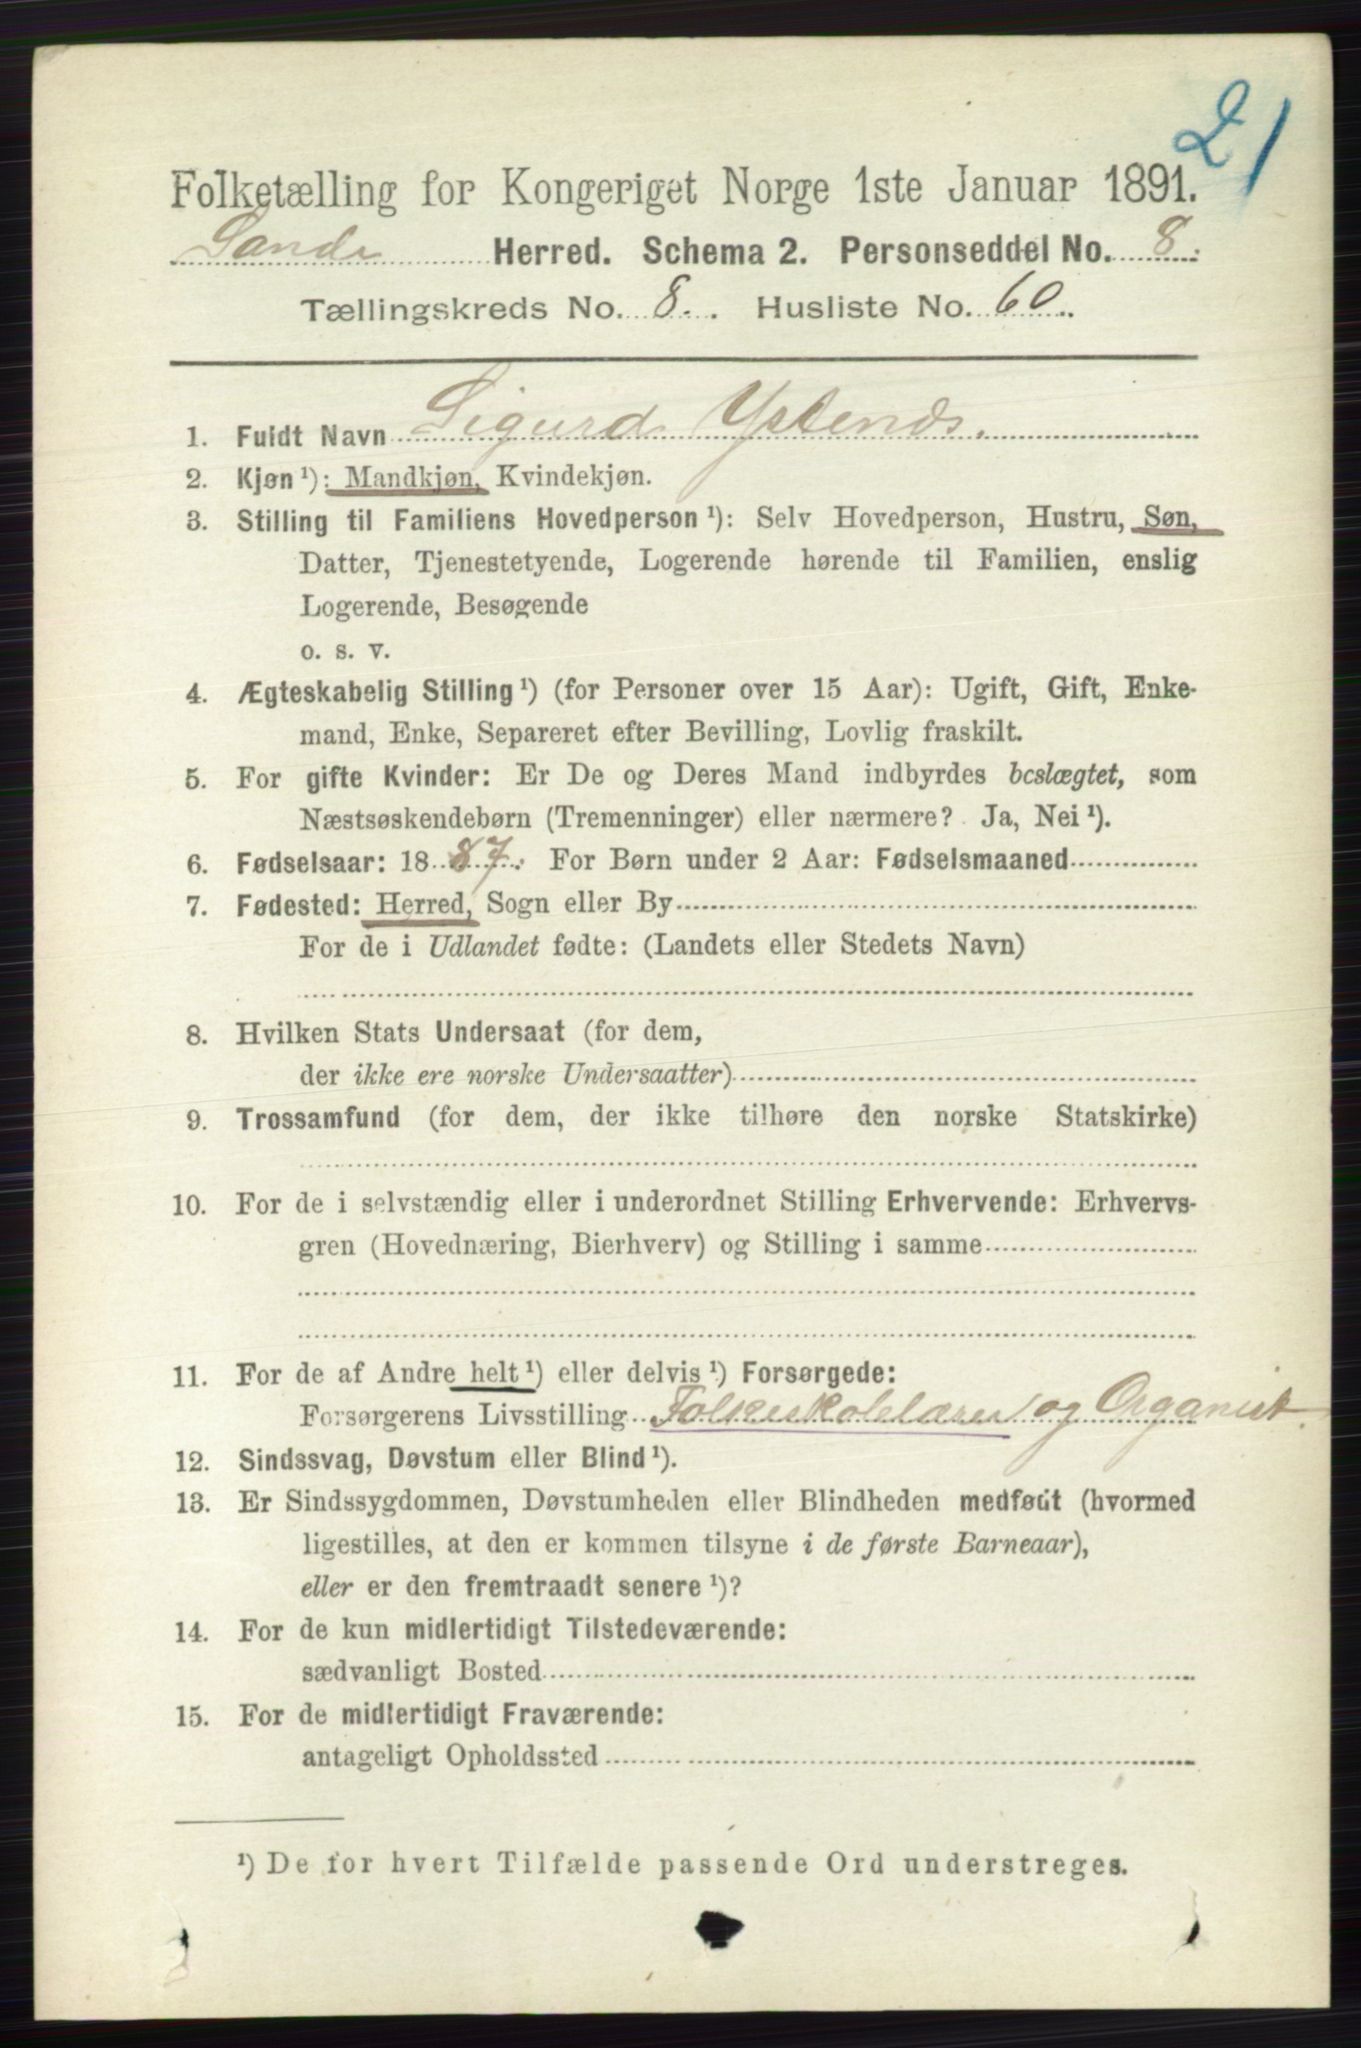 21
Folketælling for Kongeriget Norge 1ste Januar 1891.
Sande Herred. Schema 2. Personseddel No. 8.
Tællingskreds No. 8. Husliste No. 60.
1. Fuldt Navn Sigurd
2. Kjøn ¹): Mandkjøn, Kvindekjøn.
3. Stilling til Familiens Hovedperson ¹): Selv Hovedperson, Hustru, Søn,
Datter, Tjenestetyende, Logerende hørende til Familien, enslig
Logerende, Besøgende
o. s. v.
4. Ægteskabelig Stilling ¹) (for Personer over 15 Aar): Ugift, Gift, Enke-
mand, Enke, Separeret efter Bevilling, Lovlig fraskilt.
5. For gifte Kvinder: Er De og Deres Mand indbyrdes beslægtet, som
Næstsøskendebørn (Tremenninger) eller nærmere? Ja, Nei ¹).
6. Fødselsaar: 1887. For Børn under 2 Aar: Fødselsmaaned
7. Fødested: Herred, Sogn eller By
For de i Udlandet fødte: (Landets eller Stedets Navn)
8. Hvilken Stats Undersaat (for dem,
der ikke ere norske Undersaatter)
9. Trossamfund (for dem, der ikke tilhøre den norske Statskirke)
10. For de i selvstændig eller i underordnet Stilling Erhvervende: Erhvervs-
gren (Hovednæring, Bierhverv) og Stilling i samme
11. For de af Andre helt ¹) eller delvis ¹) Forsørgede:
Forsørgerens Livsstilling Folkeskolelærer og Organist.
12. Sindssvag, Døvstum eller Blind ¹).
13. Er Sindssygdommen, Døvstumheden eller Blindheden medfødt (hvormed
ligestilles, at den er kommen tilsyne i de første Barneaar),
eller er den fremtraadt senere ¹)?
14. For de kun midlertidigt Tilstedeværende:
sædvanligt Bosted
15. For de midlertidigt Fraværende:
antageligt Opholdssted
¹) De for hvert Tilfælde passende Ord understreges.